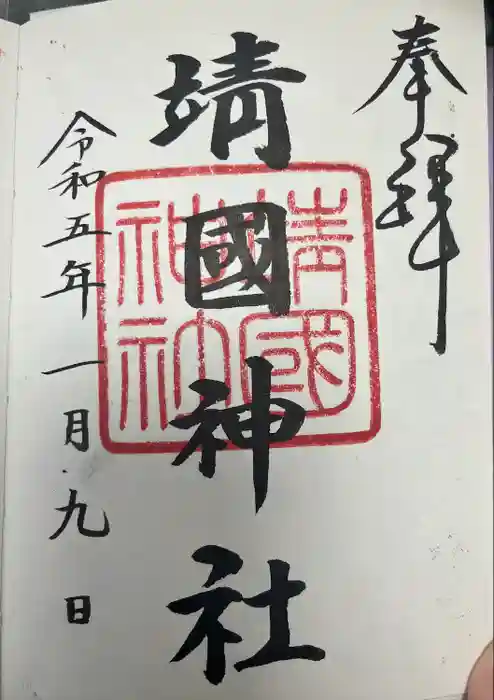 奉拝
靖國神社
靖國
神社
令和五年一月九日